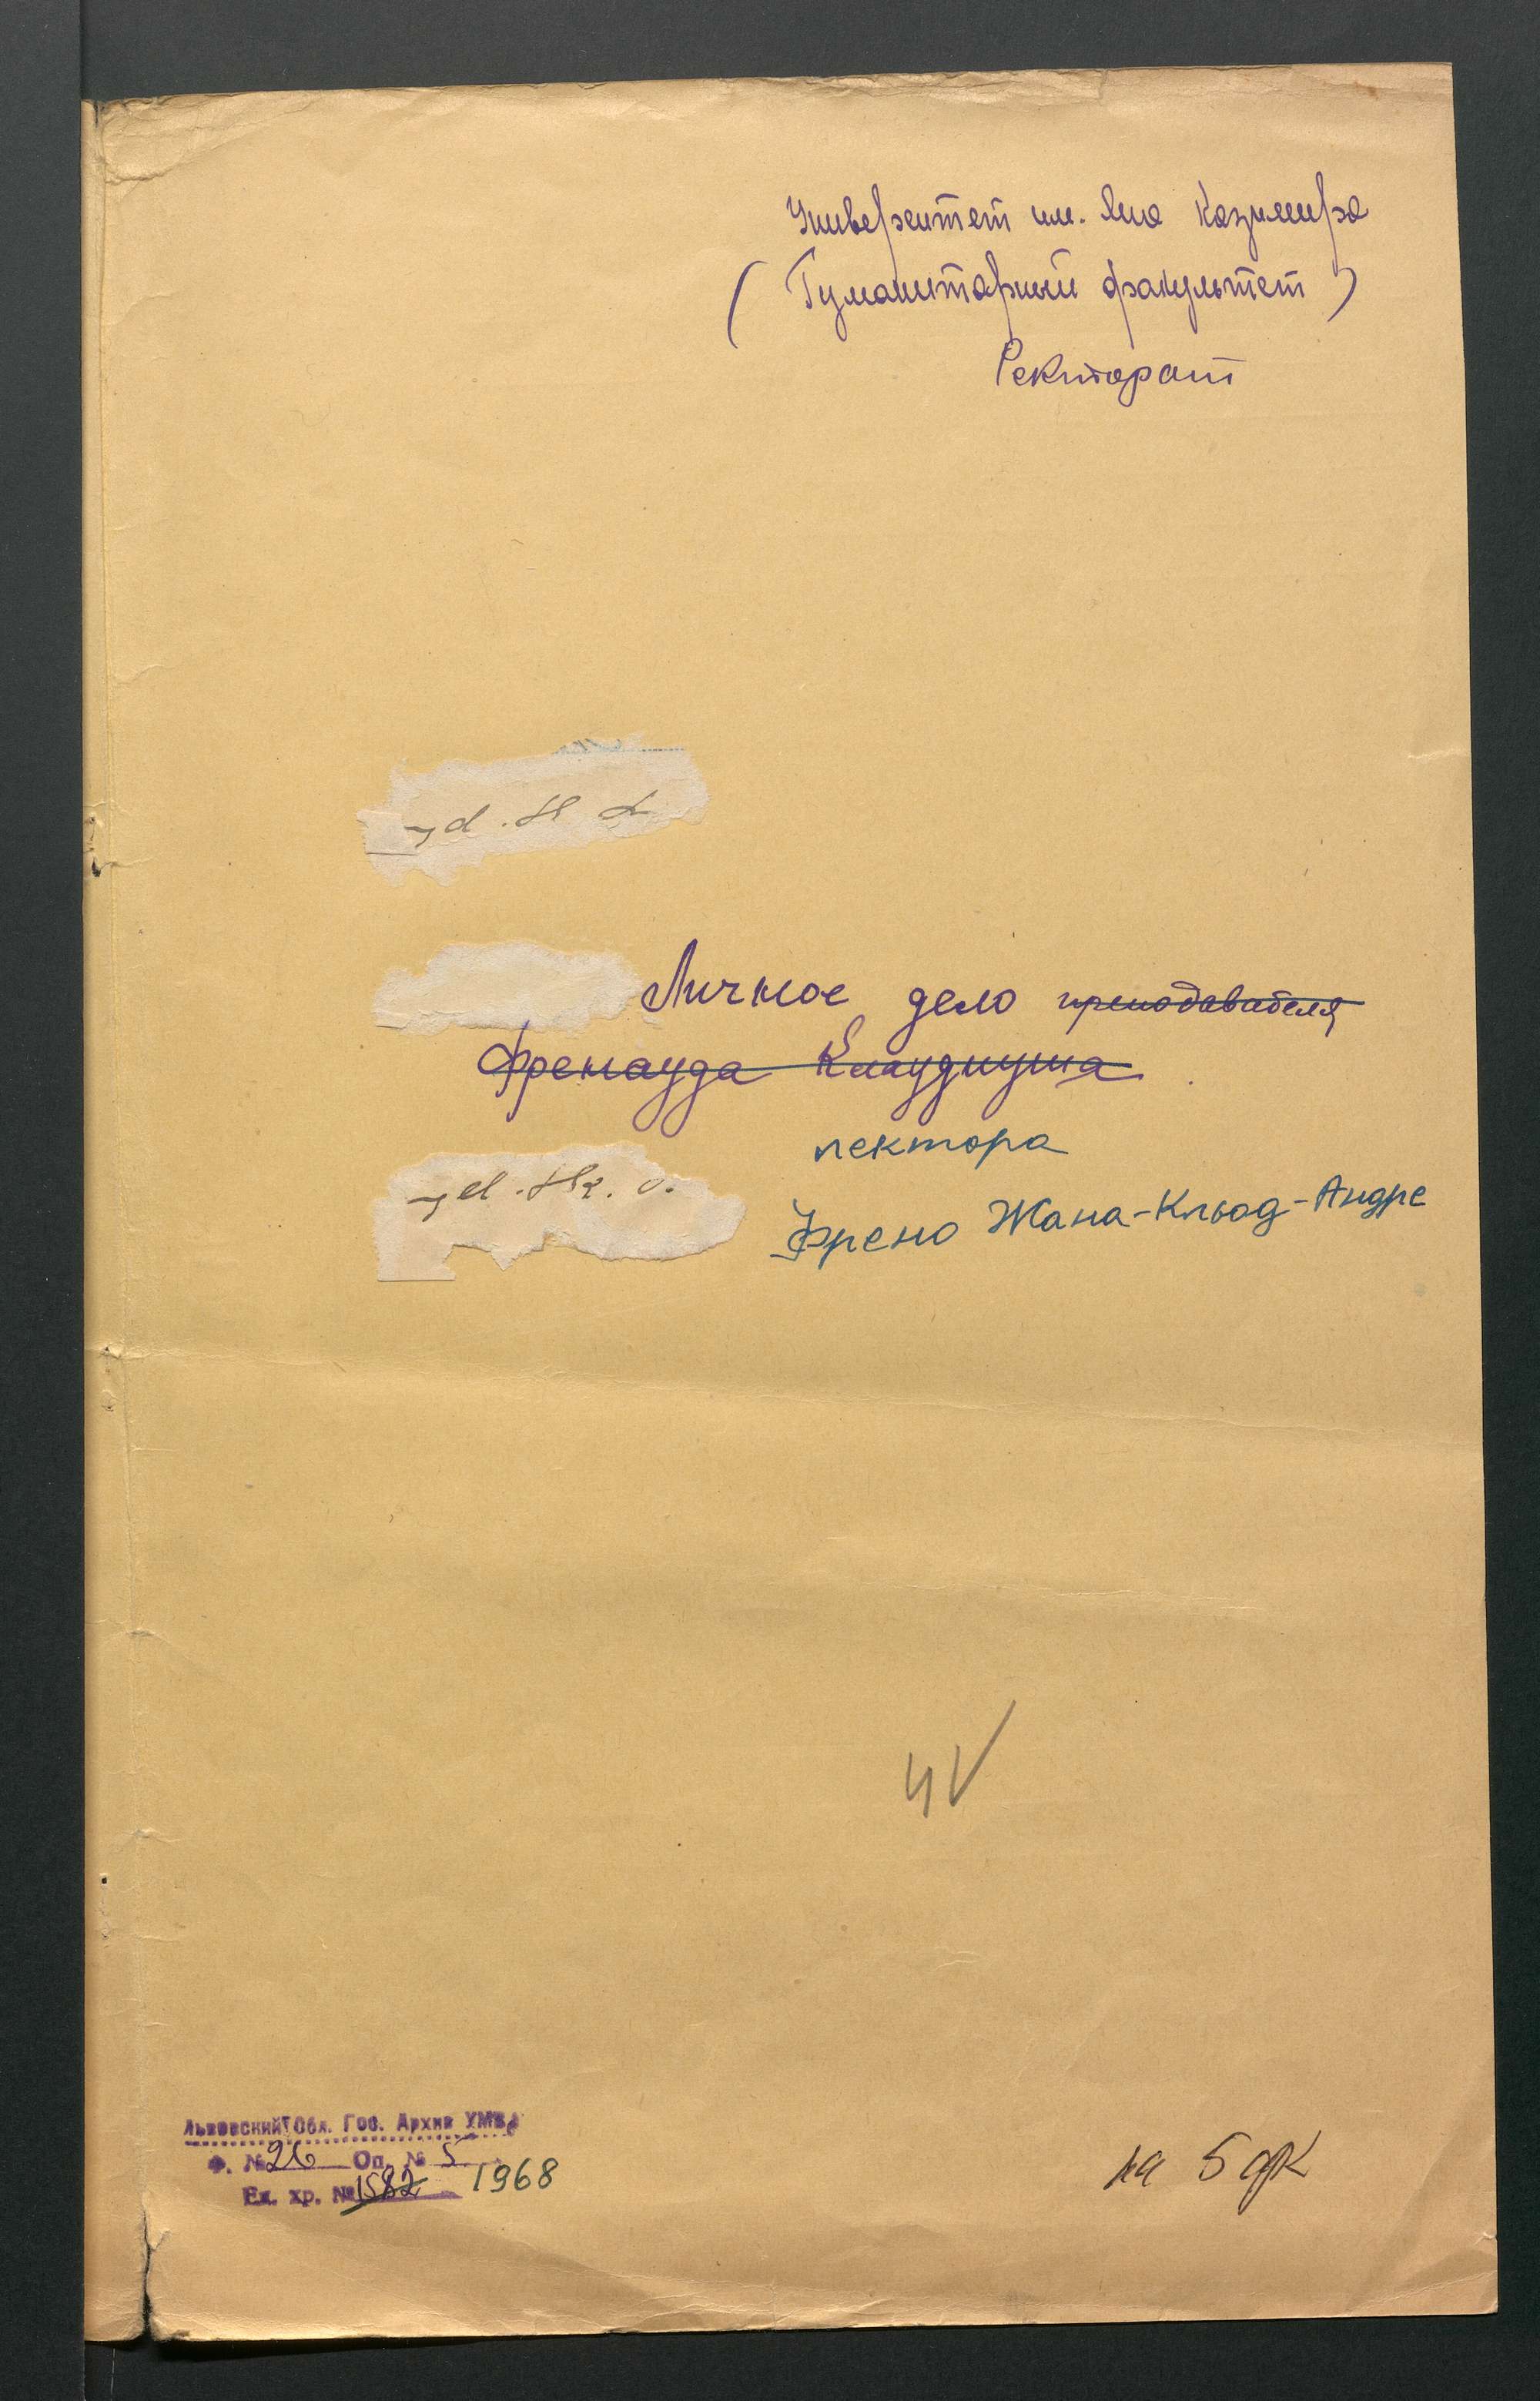 Университет им. Яна Казимира
(Гуманитарный факультет)
Ректорат
Личное дело преподавателя
Френауда Клаудиуша
лектора
Френо Жана-Клод-Андре
Львовский Обл. Гос. Архив УМВД
Ф. № 26 Оп. № 5
Ед. хр. № 1582 1968
на 5